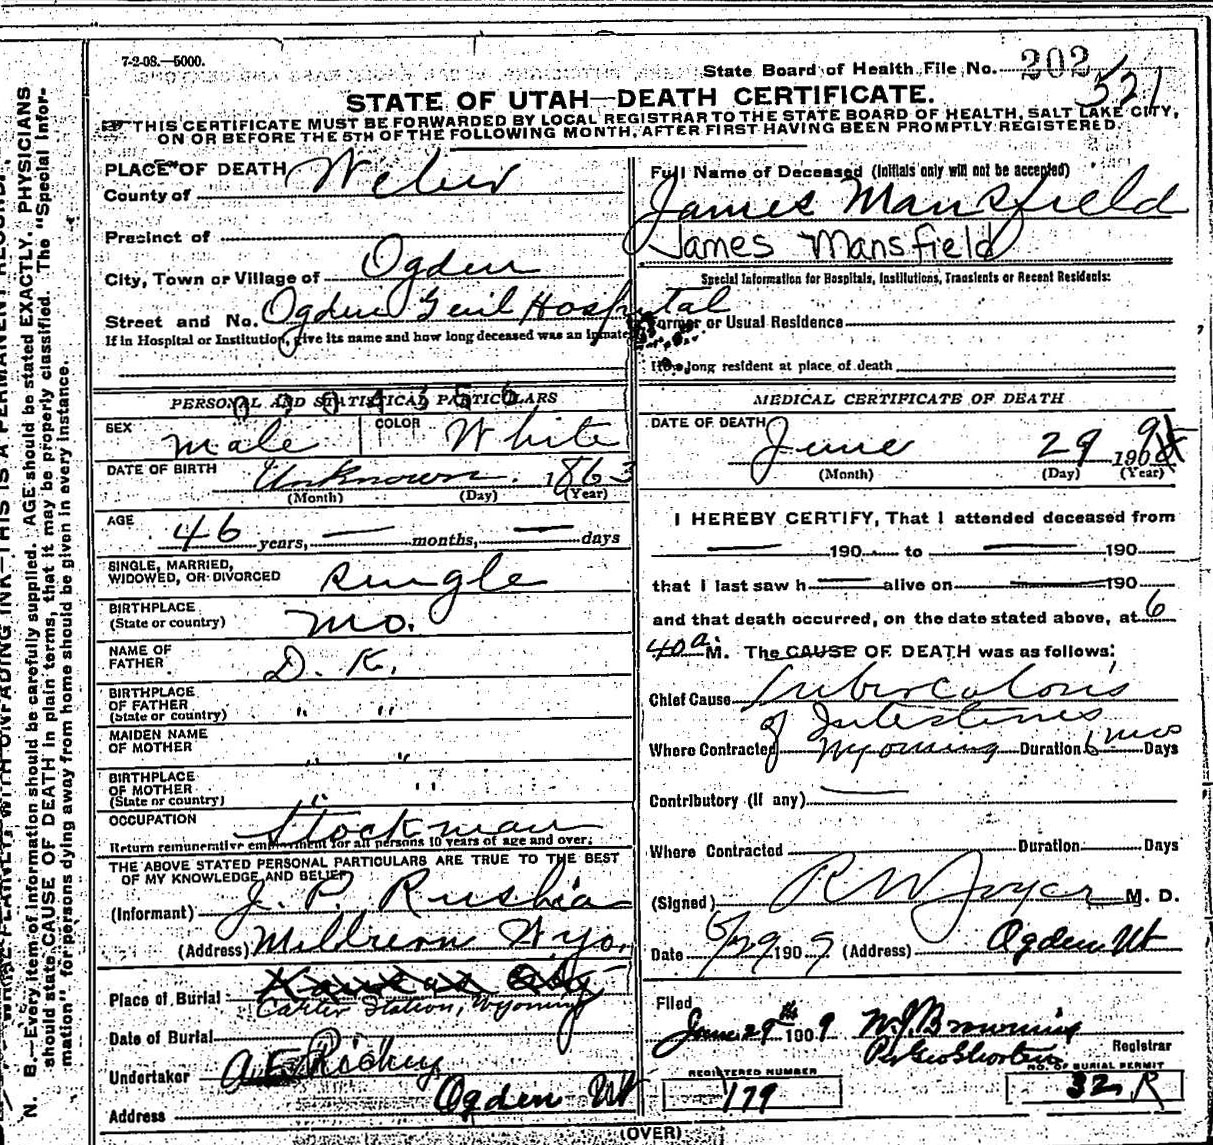 7-2-08.—5000.
State Board of Health File No. 202
521
STATE OF UTAH—DEATH CERTIFICATE.
THIS CERTIFICATE MUST BE FORWARDED BY LOCAL REGISTRAR TO THE STATE BOARD OF HEALTH, SALT LAKE CITY,
ON OR BEFORE THE 5TH OF THE FOLLOWING MONTH, AFTER FIRST HAVING BEEN PROMPTLY REGISTERED.
PLACE OF DEATH
County of Weber
Precinct of
City, Town or Village of Ogden
Street and No. Ogden Genl Hospital
If in Hospital or Institution, give its name and how long deceased was an inmate
Full Name of Deceased (Initials only will not be accepted)
James Mansfield
James Mansfield
Special Information for Hospitals, Institutions, Transients or Recent Residents:
Former or Usual Residence
How long resident at place of death
PERSONAL AND STATISTICAL PARTICULARS
SEX male COLOR White
DATE OF BIRTH Unknown. 1863
(Month) (Day) (Year)
AGE 46 years, — months, — days
SINGLE, MARRIED,
WIDOWED, OR DIVORCED single
BIRTHPLACE
(State or country) Mo.
NAME OF
FATHER D. K.
BIRTHPLACE
OF FATHER
(State or country) " "
MAIDEN NAME
OF MOTHER " "
BIRTHPLACE
OF MOTHER
(State or country) " "
OCCUPATION Stockman
Return remunerative employment for all persons 10 years of age and over.
THE ABOVE STATED PERSONAL PARTICULARS ARE TRUE TO THE BEST
OF MY KNOWLEDGE AND BELIEF
(Informant) J. P.
(Address) Wyo.
Place of Burial Kansas City
Carter Station, Wyoming
Date of Burial
Undertaker
Address Ogden Ut
MEDICAL CERTIFICATE OF DEATH
DATE OF DEATH
June 29 1909
(Month) (Day) (Year)
I HEREBY CERTIFY, That I attended deceased from
— 190 to — 190
that I last saw h — alive on — 190
and that death occurred, on the date stated above, at 6
40 a. M. The CAUSE OF DEATH was as follows:
Chief Cause Tuberculosis
of Intestines
Where Contracted Wyoming Duration 6 mos Days
Contributory (if any) —
Where Contracted Duration Days
(Signed) M. D.
Date 6/29 1909 (Address) Ogden Ut
Filed
June 29th 1909 W. J. Browning
Registrar
REGISTERED NUMBER
179
NO. OF BURIAL PERMIT
32 R
(OVER)
N. B.—Every item of information should be carefully supplied. AGE should be stated EXACTLY. PHYSICIANS
should state CAUSE OF DEATH in plain terms, that it may be properly classified. The "Special Infor-
mation" for persons dying away from home should be given in every instance.